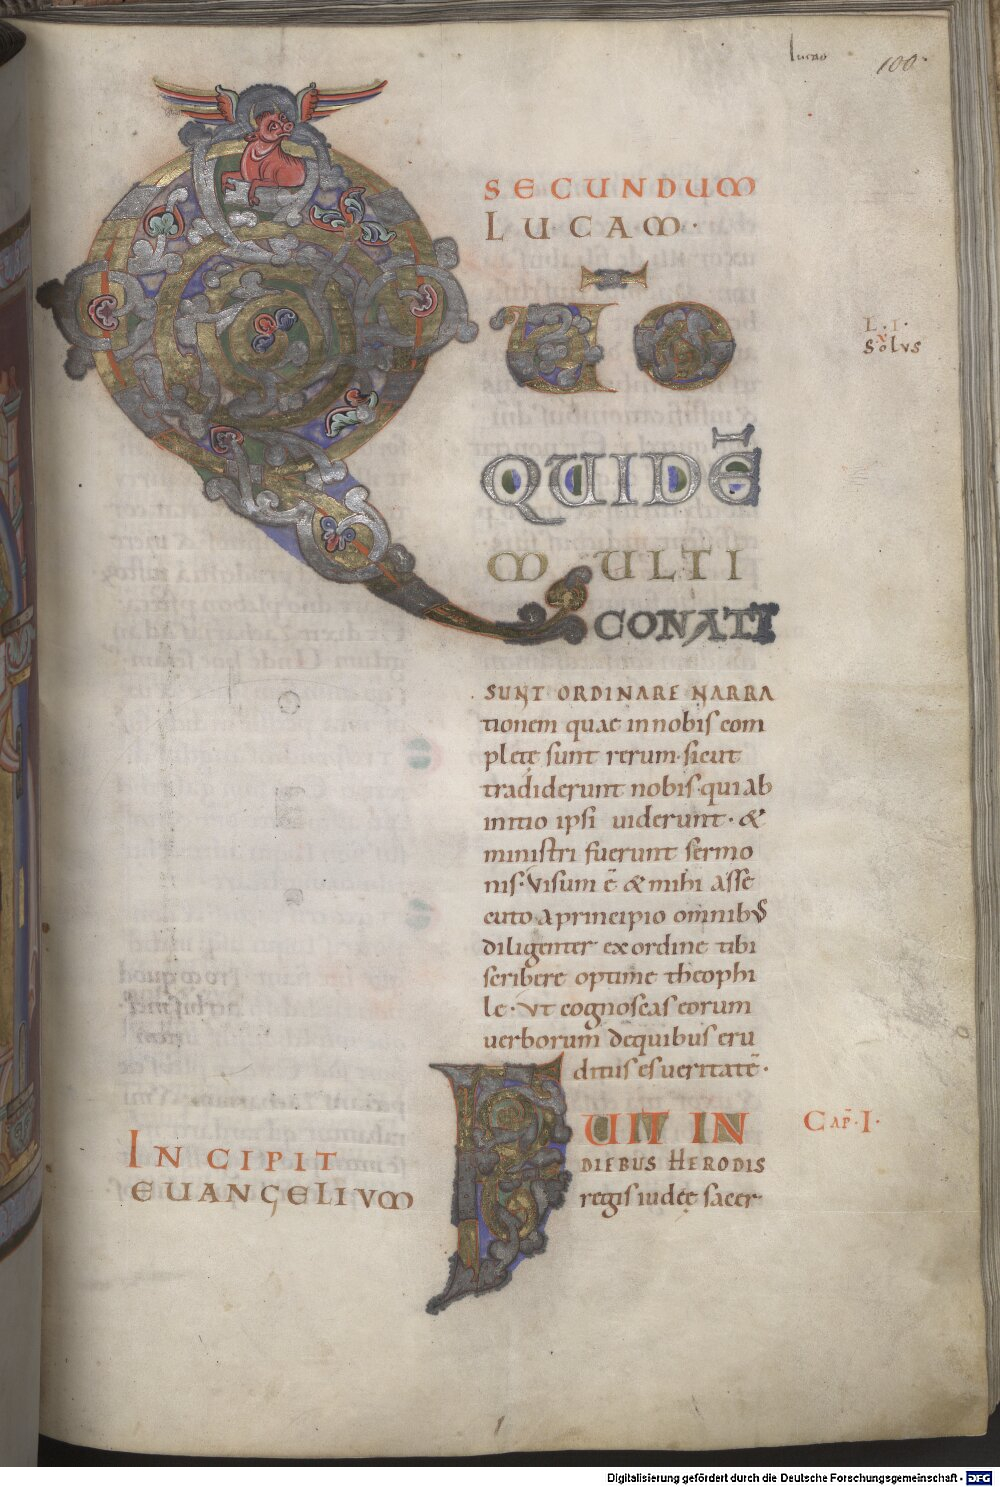 lucas
100.
INCIPIT
EUANGELIVM
SECUNDUM
LUCAM·
QUŌ
QUIDĒ
MULTI
CONATI
SUNT ORDINARE NARRA
tionem quae innobis com
pletę sunt rerum· sicut
tradiderunt nobis· qui ab
initio ipsi uiderunt· &
ministri fuerunt sermo
nis· Visum ē & mihi asse
cuto a principio omnibus
diligenter exordine tibi
scribere optime theophi
le· Vt cognoscas eorum
uerborum dequibus eru
ditus es ueritatē·
FUIT IN
DIEBUS HERODIS
regis iudęę sacer
L·I·
X
Solus
CAP̄·I·
Digitalisierung gefördert durch die Deutsche Forschungsgemeinschaft - DFG